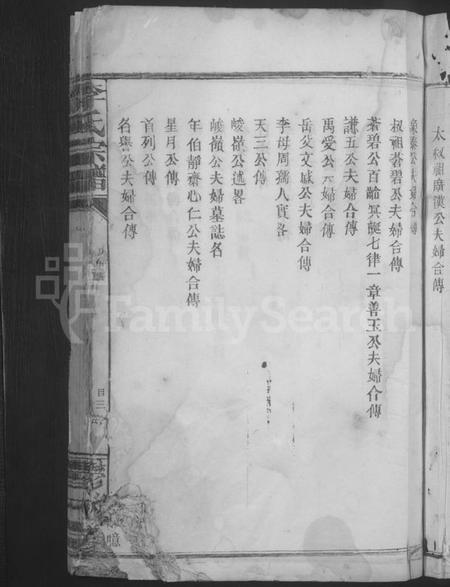 太叔祖廣漢公夫婦合傳
公夫婦合傳
叔祖著碧公夫婦合傳
著碧公百齡冥誕七律一章善玉公夫婦合傳
謙五公夫婦合傳
禹愛公夫婦合傳
岳父文成公夫婦合傳
李母周孺人實畧
天三公傳
峻嶺公述畧
峻嶺公夫婦墓誌名
年伯靜齋心仁公夫婦合傳
星月公傳
首列公傳
名譽公夫婦合傳
李氏宗譜
目
FamilySearch